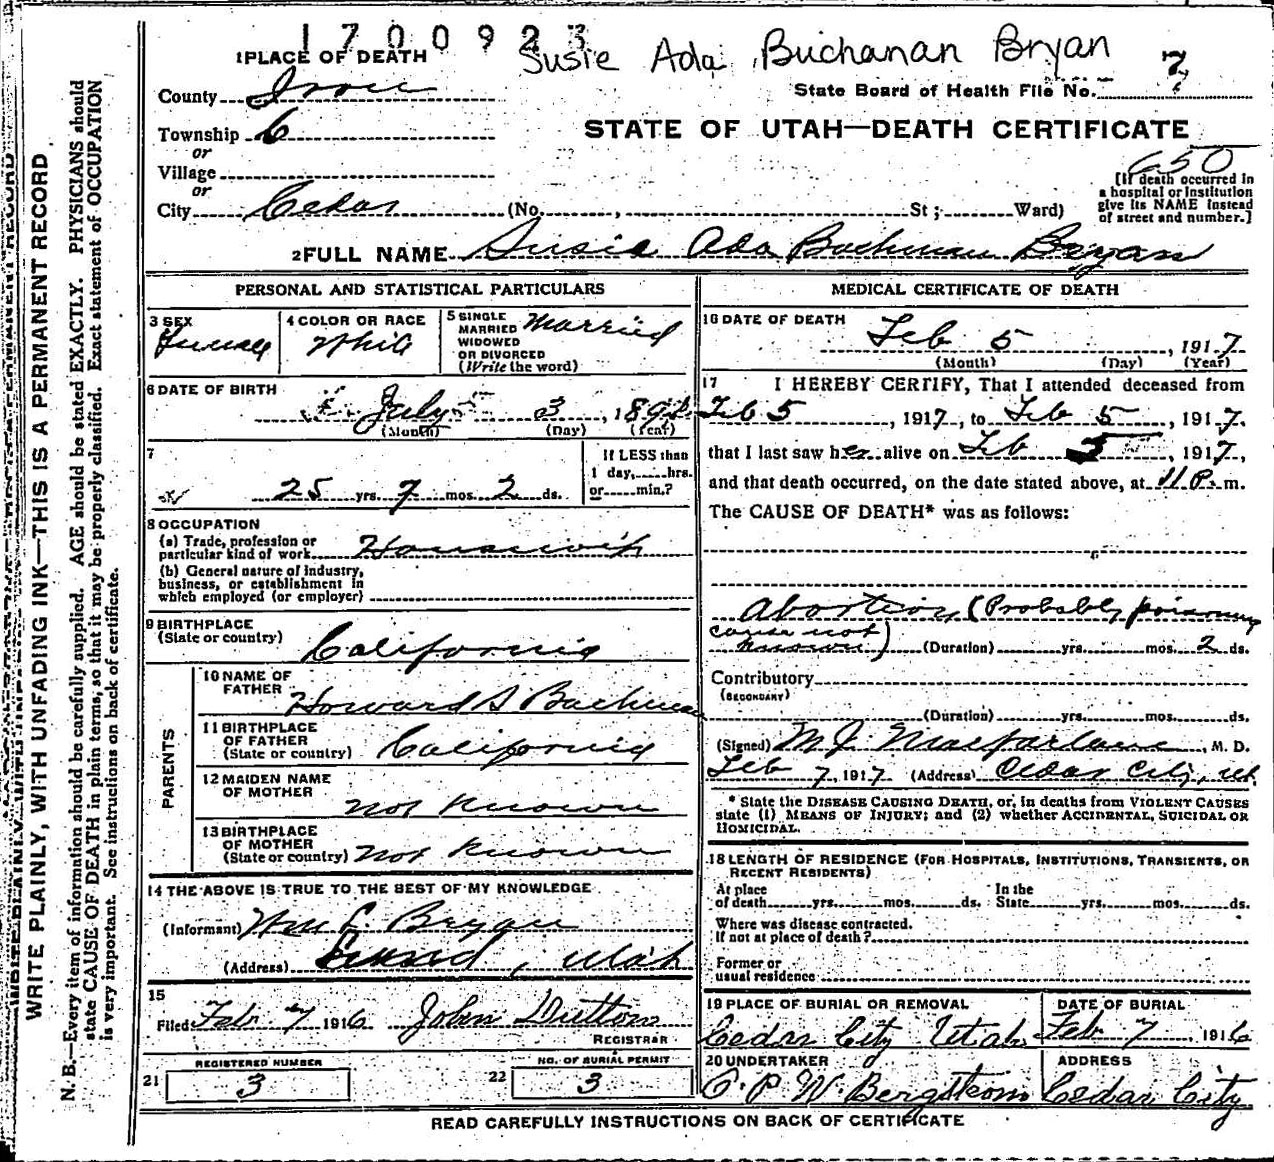 1700923
Susie Ada Buchanan Bryan
1 PLACE OF DEATH
County Iron
State Board of Health File No. 7
Township 6
STATE OF UTAH—DEATH CERTIFICATE
or
Village
or
650
[If death occurred in
a hospital or institution
give its NAME instead
of street and number.]
City Cedar (No. , St; Ward)
2 FULL NAME Susie Ada Bachman Bryan
PERSONAL AND STATISTICAL PARTICULARS
3 SEX
Female
4 COLOR OR RACE
White
5 SINGLE
MARRIED
WIDOWED
OR DIVORCED
(Write the word)
Married
6 DATE OF BIRTH
July 3, 189
(Month) (Day) (Year)
7
25 yrs. 7 mos. 2 ds.
If LESS than
1 day, hrs.
or min.?
8 OCCUPATION
(a) Trade, profession or
particular kind of work Housewife
(b) General nature of industry,
business, or establishment in
which employed (or employer)
9 BIRTHPLACE
(State or country) California
PARENTS
10 NAME OF
FATHER Howard S Bachman
11 BIRTHPLACE
OF FATHER
(State or country) California
12 MAIDEN NAME
OF MOTHER
not Known
13 BIRTHPLACE
OF MOTHER
(State or country) not Known
14 THE ABOVE IS TRUE TO THE BEST OF MY KNOWLEDGE
(Informant) Wm E. Bryan
(Address) Lund, Utah
15
Filed Feb 7 1916 John Dutton
REGISTRAR
REGISTERED NUMBER
21 3
NO. OF BURIAL PERMIT
22 3
MEDICAL CERTIFICATE OF DEATH
16 DATE OF DEATH
Feb 5, 1917
(Month) (Day) (Year)
17 I HEREBY CERTIFY, That I attended deceased from
Feb 5, 1917, to Feb 5, 1917.
that I last saw her alive on Feb 5, 1917,
and that death occurred, on the date stated above, at 11 P. m.
The CAUSE OF DEATH* was as follows:
Abortion (Probably poisoning
cause not
known) (Duration) yrs. mos. 2 ds.
Contributory
(SECONDARY)
(Duration) yrs. mos. ds.
(Signed) M J Macfarlane, M. D.
Feb 7, 1917 (Address) Cedar City, Ut.
* State the DISEASE CAUSING DEATH, or, in deaths from VIOLENT CAUSES
state (1) MEANS OF INJURY; and (2) whether ACCIDENTAL, SUICIDAL OR
HOMICIDAL.
18 LENGTH OF RESIDENCE (FOR HOSPITALS, INSTITUTIONS, TRANSIENTS, OR
RECENT RESIDENTS)
At place
of death yrs. mos. ds.
In the
State yrs. mos. ds.
Where was disease contracted.
If not at place of death?
Former or
usual residence
19 PLACE OF BURIAL OR REMOVAL
Cedar City Utah
DATE OF BURIAL
Feb 7, 1916
20 UNDERTAKER
C. P. W. Bergstrom
ADDRESS
Cedar City
READ CAREFULLY INSTRUCTIONS ON BACK OF CERTIFICATE
WRITE PLAINLY, WITH UNFADING INK—THIS IS A PERMANENT RECORD
N. B.—Every item of information should be carefully supplied. AGE should be stated EXACTLY. PHYSICIANS should
state CAUSE OF DEATH in plain terms, so that it may be properly classified. Exact statement of OCCUPATION
is very important. See instructions on back of certificate.